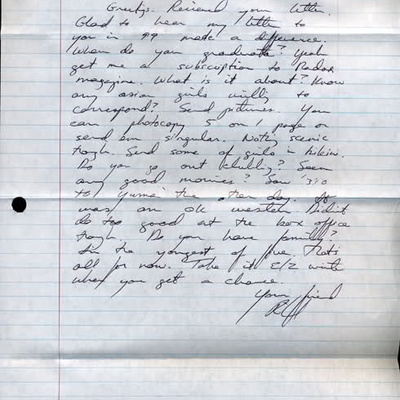 Greetgs. Received your letter.
Glad to hear my letter to
you in 99 made a difference.
When do you graduate? Yeah
get me a subscription to Radar
magazine. What is it about? Know
any asian girls willing to
correspond? Send pictures. You
can photocopy 5 on 1 page or
send em singular. Noting scenic
though. Send some of girls in
Do you go out clubbing? Seen
any good movies? Saw '3:10
to Yuma' the other day. It
was an ok western. Didnt
do too good at the box office
though. Do you have family?
Im the youngest of five. Thats
all for now. Take it E/Z write
when you get a chance.
Your friend